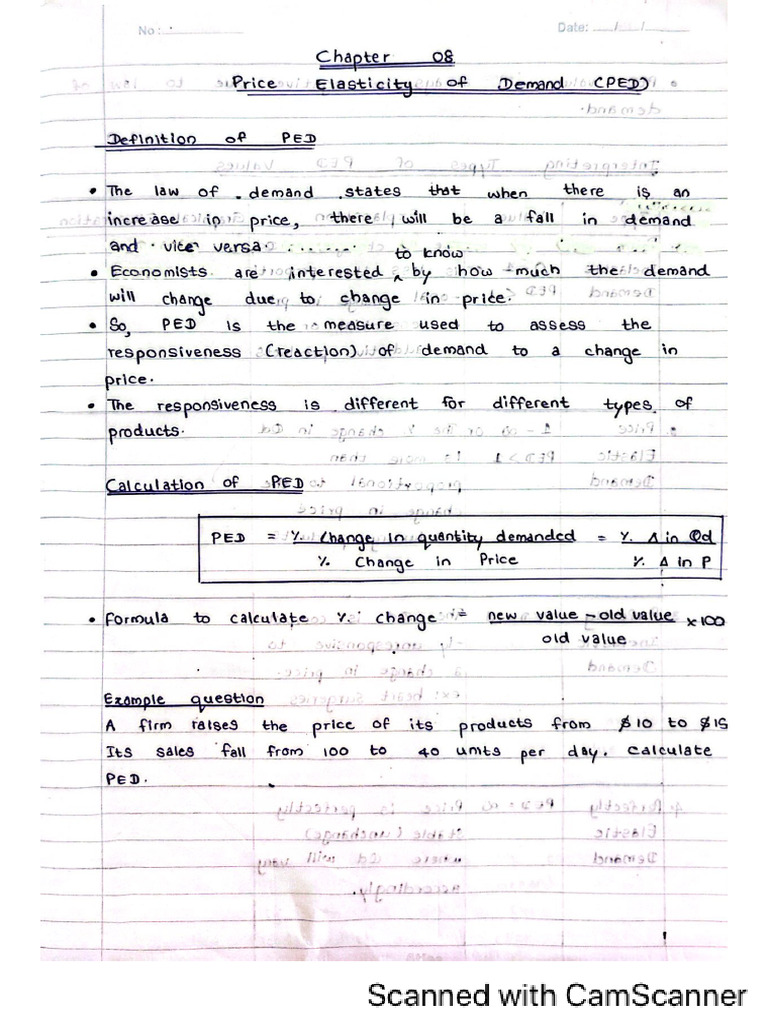 No :
Date: / /
Chapter 08
Price Elasticity of Demand (PED)
Definition of PED
• The law of demand states that when there is an
increase in price, there will be a fall in demand
and vice versa.
to know
• Economists are interested ^ by how much the demand
will change due to change in price.
• So, PED is the measure used to assess the
responsiveness (reaction) of demand to a change in
price.
• The responsiveness is different for different types of
products.
Calculation of PED
PED = % change in quantity demanded = % Δ in Qd
% Change in Price % Δ in P
• Formula to calculate % change = new value - old value x100
old value
Example question
A firm raises the price of its products from $10 to $15
Its sales fall from 100 to 40 units per day. Calculate
PED.
Scanned with CamScanner